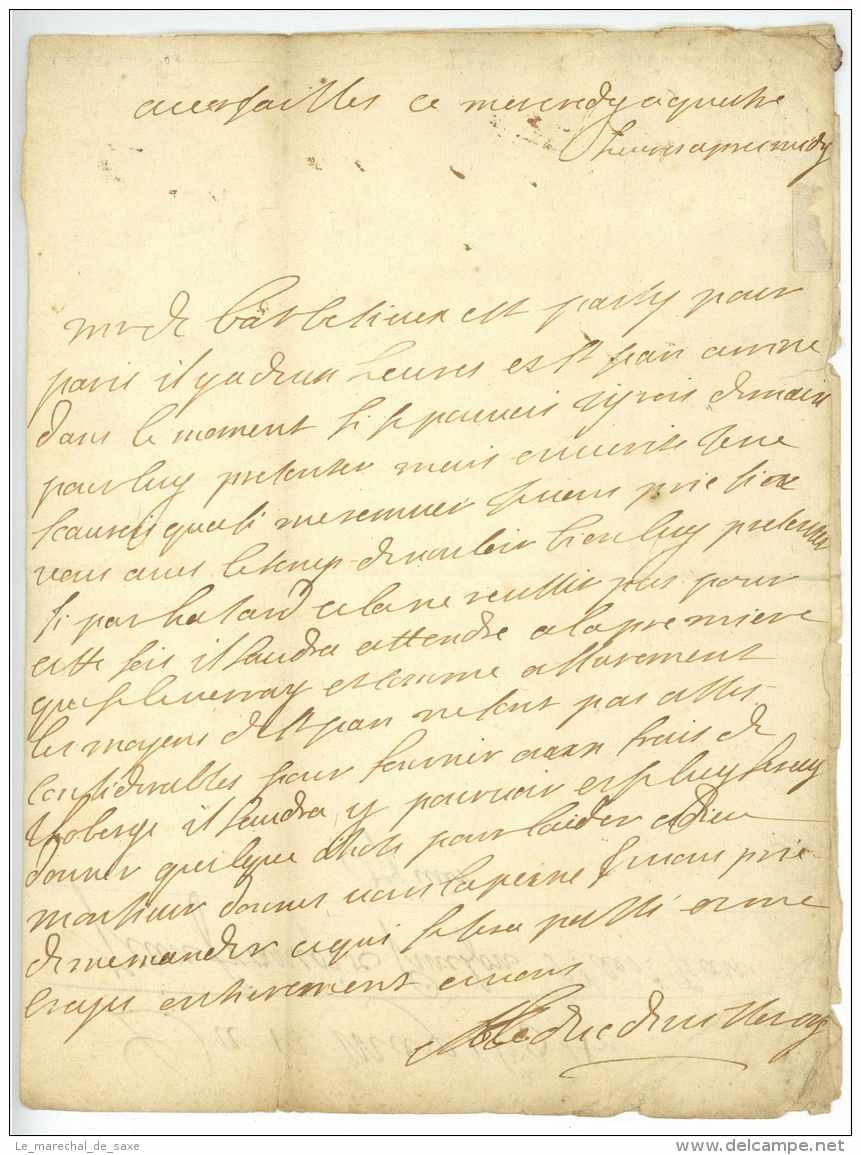 a versailles ce mercredy a quatre
heures apres midy
mr de barbesieux est party pour
paris il y a deux heures et st jean arrive
dans le moment si je pouvois j yrois demain
pour luy presenter mais en verité je ne
scaurois quasi me remuer je vous prie si
vous aves le temps de vouloir bien luy presenter
si par hasard cela ne reussit pas pour
cette fois il faudra attendre a la premiere
que je le verray et comme assurement
les moyens de st jean ne sont pas asses
considerables pour fournir aux frais de
l auberge il faudra y pourvoir et je luy feray
donner quelque chose pour l aider adieu
monsieur donnes vous la peine je vous prie
de me mander ce qui se sera passé et me
croyes entierement a vous
le duc de villeroy
Le_marechal_de_saxe
www.delcampe.net